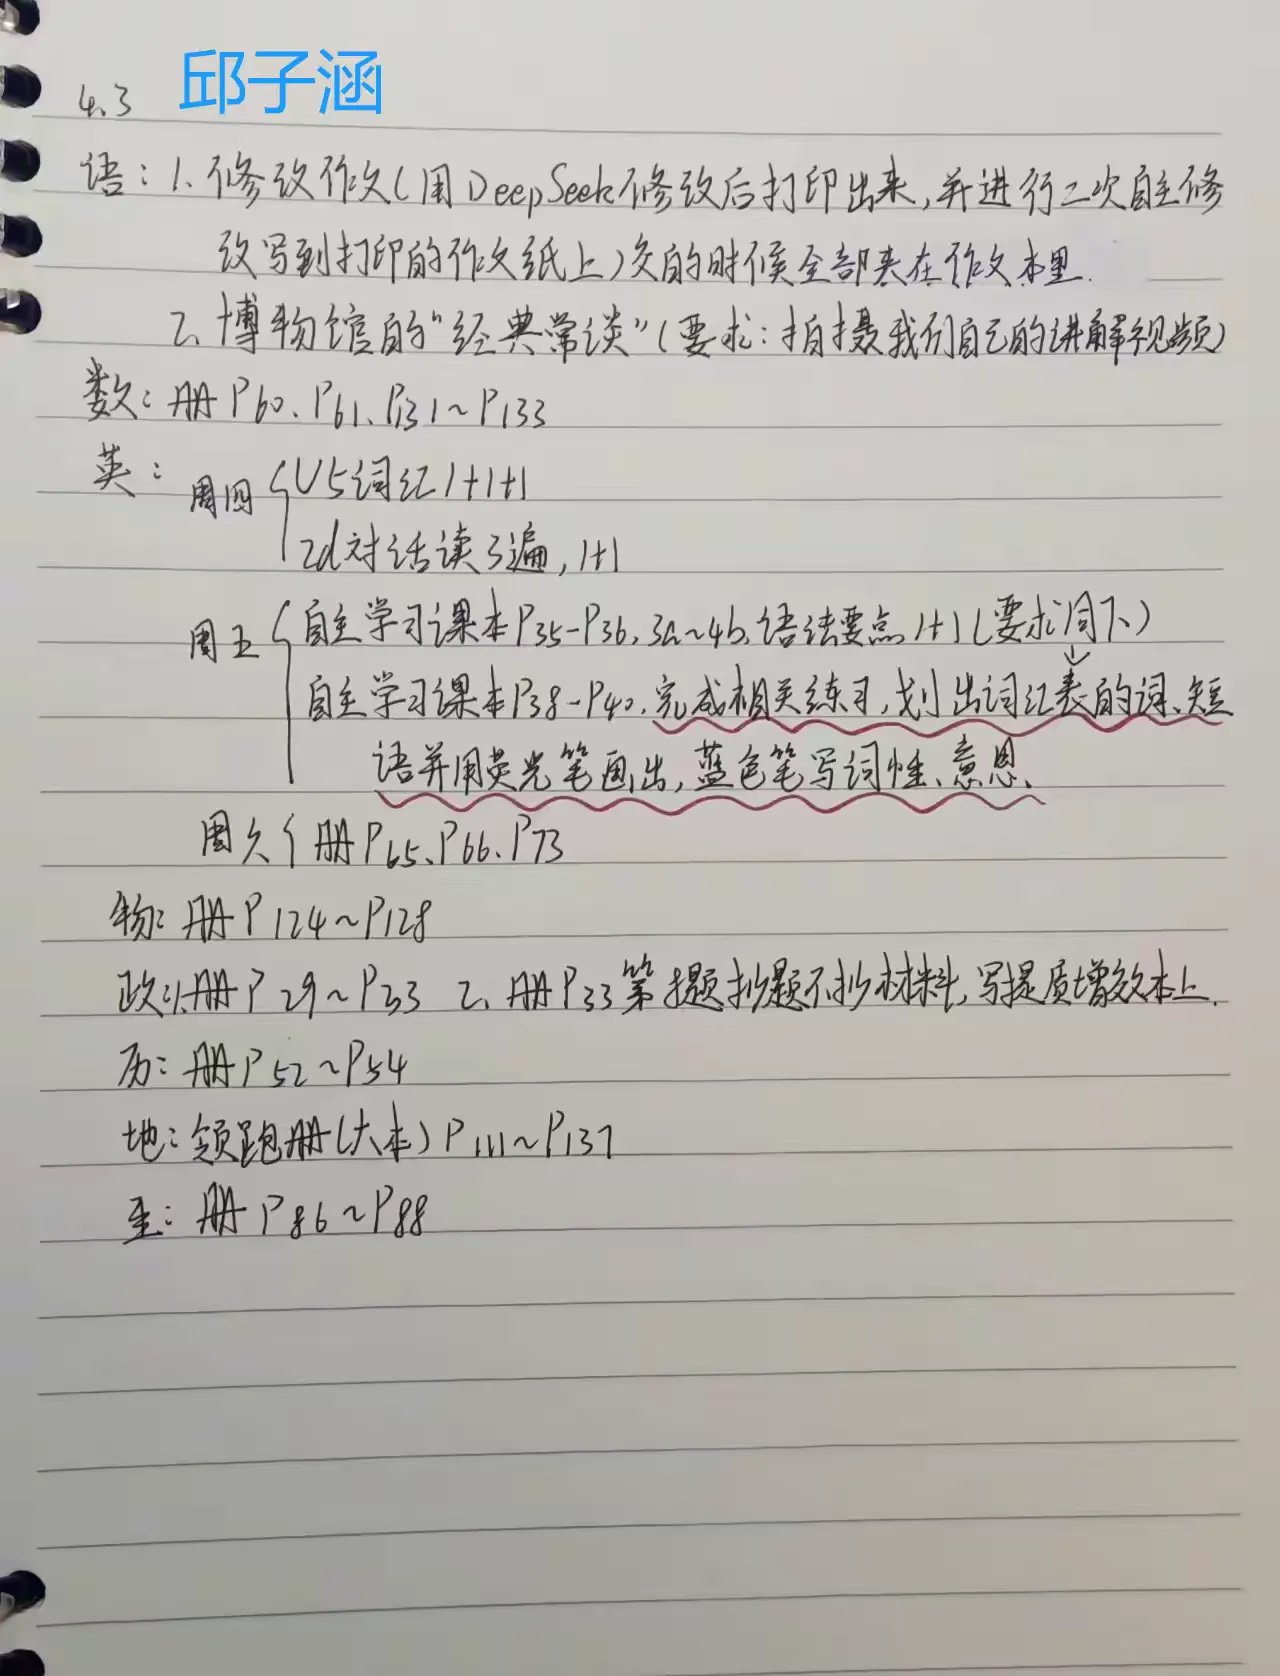 4.3 邱子涵
语：1.修改作文（用DeepSeek修改后打印出来，并进行二次自主修
改写到打印的作文纸上）交的时候全部夹在作文本里.
2.博物馆的“经典常谈”（要求：拍摄我们自己的讲解视频）
数：册P60、P61、P131~P133
英：周四{U5词汇1+1+1
2d对话读3遍，1+1
周五{自主学习课本P35-P36，3a~4b，语法要点1+1（要求同下）
自主学习课本P38-P40，完成相关练习，划出词汇表的词、短
语并用荧光笔画出，蓝色笔写词性、意思、
周六{册P65、P66、P73
物：册P124~P128
政：1.册P29~P33 2.册P33第1题抄题不抄材料，写提质增效本上.
历：册P52~P54
地：领跑册（大本）P111~P137
生：册P86~P88